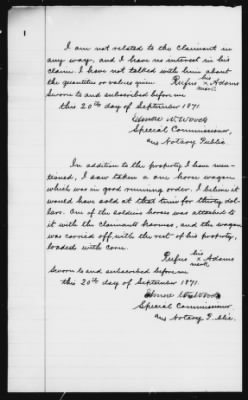 1
I am not related to the claimant in
any way, and I have no interest in his
claim. I have not talked with him about
the quantities or values given.
his
Rufus x Adams
mark
Sworn to and subscribed before me
this 20th day of September 1871.
Special Commissioner,
Notary Public.
In addition to the property I have men-
tioned, I saw taken a one horse wagon
which was in good running order. I believe it
would have sold at that time for thirty dol-
lars. One of the soldiers horses was attached to
it with the claimants harness, and the wagon
was carried off with the rest of his property,
loaded with corn.
his
Rufus x Adams
mark
Sworn to and subscribed before me
this 20th day of September 1871.
Special Commissioner